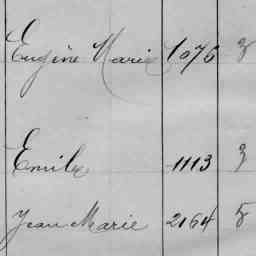 Eugène Marie 1076 3
Emile 1113 3
Jean Marie 2164 5